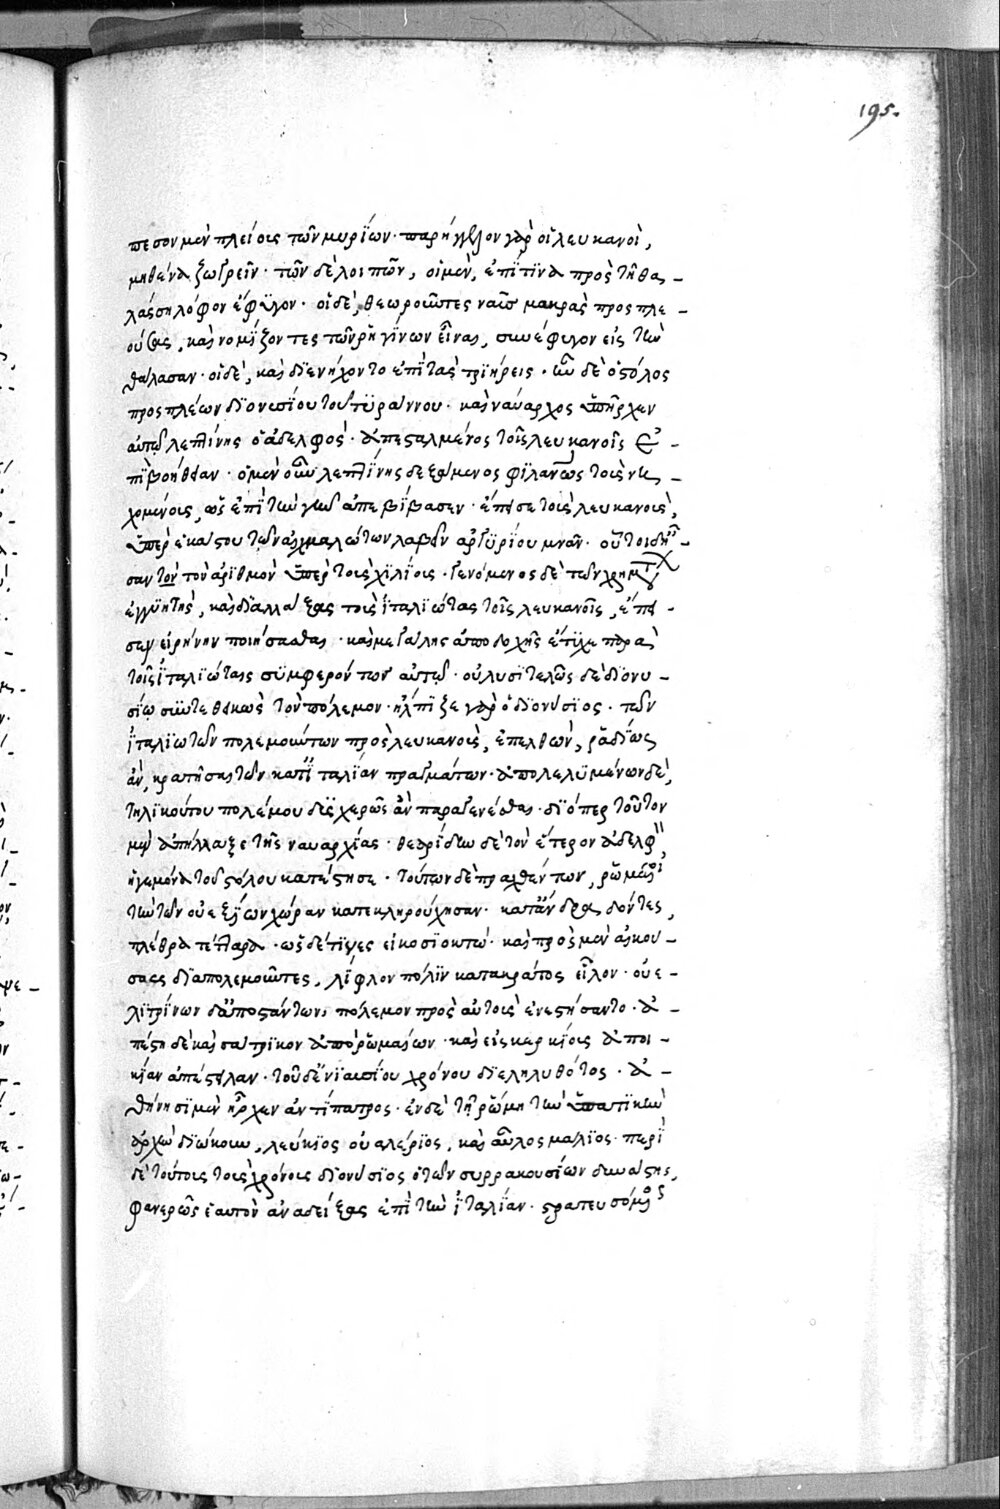 195.
πεσον μὲν πλείοις τῶν μυρίων· παρήγγελον γὰρ οἱ λευκανοὶ,
μηθένα ζωγρεῖν· τῶν δὲ λοιπῶν, οἱ μὲν, ἐπί τινα πρὸς τῆ θα-
λάσσῃ λόφον ἔφυγον· οἱ δὲ, θεωροῦντες ναῦς μακρὰς προσπλε-
ούσας, καὶ νομίζοντες τῶν ῥηγίνων εἶναι, συνέφυγον εἰς τὴν
θάλασαν· οἱ δὲ, καὶ διενήχοντο ἐπὶ τὰς τριήρεις· ἦν δὲ ὁ στόλος
προσπλέων διονυσίου τοῦ τυράννου· καὶ ναύαρχος ὑπῆρχεν
αὐτῶ λεπτίνης ὁ ἀδελφός· ἀπεσταλμένος τοῖς λευκανοῖς ἐ-
πὶ βοήθειαν· ὁ μὲν οὖν λεπτίνης δεξάμενος φιλανθρώπως τοὺς νη-
χομένοις, ὡς ἐπὶ τὴν γῆν ἀπεβίβασεν· ἔπεισε τοὺς λευκανοὺς,
ὑπὲρ ἑκάστου τῶν αἰχμαλώτων λαβεῖν ἀργυρίου μνᾶν· οὗτοι δ' ἦ-
σαν τὸν τὸν ἀριθμὸν ὑπὲρ τοὺς χιλίοις· γενόμενος δὲ τῶν χρημάτων
ἐγγυητὴς, καὶ διαλλάξας τοὺς ἰταλιώτας τοῖς λευκανοῖς, ἔπει-
σεν εἰρήνην ποιήσασθαι· καὶ μεγάλης ἀποδοχῆς ἔτυχε παρὰ
τοῖς ἰταλιώταις συμφερόντων αὐτῶ· οὐ λυσιτελῶς δὲ διονυ-
σίω συντεθεικὼς τὸν πόλεμον· ἤλπιζε γὰρ ὁ διονύσιος· τῶν
ἰταλιωτῶν πολεμούντων πρὸς λευκανοὺς, ἐπελθὼν, ῥαδίως
ἂν, κρατῆσαι τῶν κατ' ἰταλίαν πραγμάτων· ἀπολελυμένων δὲ,
τηλικούτου πολέμου δυσχερῶς ἂν παραγενέσθαι· διόπερ τοῦτον
μὲν ἀπήλλαξε τῆς ναυαρχίας· θεαρίδην δὲ τὸν ἕτερον ἀδελφὸν,
ἡγεμόνα τοῦ στόλου κατέστησε· τούτων δὲ πραχθέντων, ῥωμαῖοι
τὴν τῶν οὐεξίων χώραν κατεκληρούχησαν· κατ' ἄνδρα δόντες,
πλέθρα τέτταρα· ὡς δέ τινες εἰκοσιοκτώ· καὶ πρὸς μὲν αἰκου-
σαις διαπολεμοῦντες, λίφλον πόλιν κατακράτος εἷλον· οὐε-
λιτρίνων δ' ἀποστάντων, πόλεμον πρὸς αὐτοὺς ἐνεστήσαντο· ἀ-
πέστη δὲ καὶ σατρικον ἀπὸ ῥωμαίων· καὶ εἰς κερκίοις ἀποι-
κίαν ἀπέστειλαν· τοῦ δ' ἐνιαυσίου χρόνου διεληλυθότος· ἀ-
θήνησι μὲν ἦρχεν ἀντίπατρος· ἐν δὲ τῆ ῥώμη τὴν ὑπατικὴν
ἀρχὴν διώκουν, λεύκιος οὐαλέριος, καὶ αὖλος μάλιος· περὶ
δὲ τούτοις τοὺς χρόνοις διονύσιος ὁ τῶν συρρακουσίων δυνάστης,
φανερῶς ἑαυτὸν ἀναδείξας ἐπὶ τὴν ἰταλίαν· στρατευσόμενος